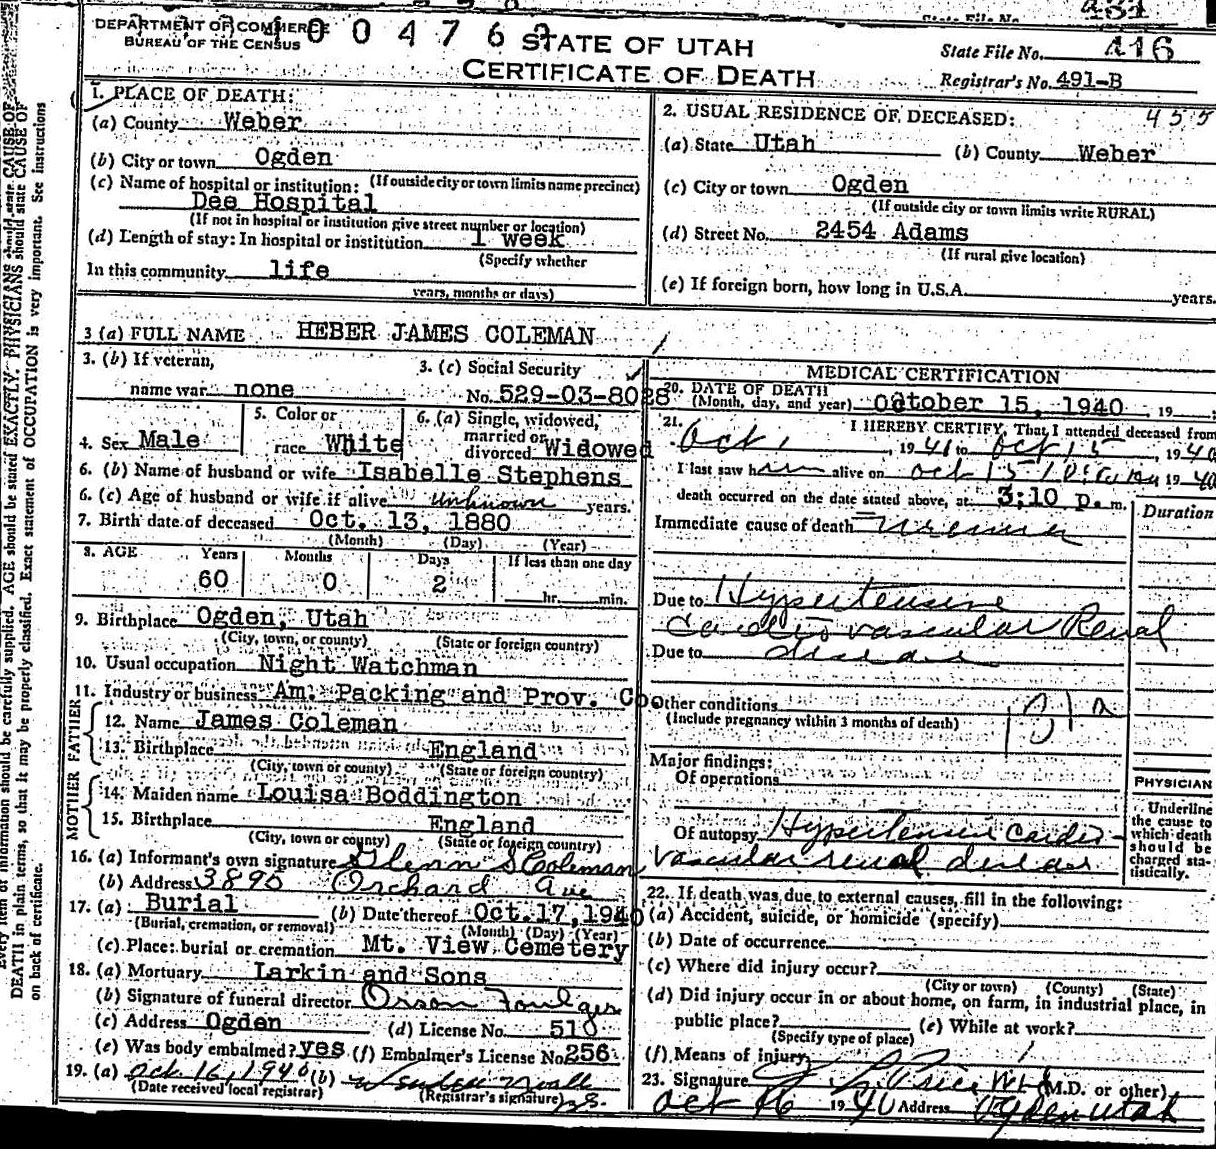 State File No. 431
DEPARTMENT OF COMMERCE
BUREAU OF THE CENSUS
0 0 4 7 6
STATE OF UTAH
CERTIFICATE OF DEATH
State File No. 416
Registrar's No. 491-B
1. PLACE OF DEATH:
(a) County Weber
(b) City or town Ogden
(If outside city or town limits name precinct)
(c) Name of hospital or institution:
Dee Hospital
(If not in hospital or institution give street number or location)
(d) Length of stay: In hospital or institution 1 week
(Specify whether
In this community life
years, months or days)
2. USUAL RESIDENCE OF DECEASED: 455
(a) State Utah (b) County Weber
(c) City or town Ogden
(If outside city or town limits write RURAL)
(d) Street No. 2454 Adams
(If rural give location)
(e) If foreign born, how long in U.S.A. years.
3 (a) FULL NAME HEBER JAMES COLEMAN
3. (b) If veteran,
name war none
3. (c) Social Security
No. 529-03-8028
4. Sex Male
5. Color or
race White
6. (a) Single, widowed,
married or
divorced Widowed
6. (b) Name of husband or wife Isabelle Stephens
6. (c) Age of husband or wife if alive unknown years.
7. Birth date of deceased Oct. 13, 1880
(Month) (Day) (Year)
8. AGE Years Months Days If less than one day
60 0 2 hr. min.
9. Birthplace Ogden, Utah
(City, town, or county) (State or foreign country)
10. Usual occupation Night Watchman
11. Industry or business Am. Packing and Prov. Co
FATHER
12. Name James Coleman
13. Birthplace England
(City, town or county) (State or foreign country)
MOTHER
14. Maiden name Louisa Boddington
15. Birthplace England
(City, town or county) (State or foreign country)
16. (a) Informant's own signature Glenn S Coleman
(b) Address 3890 Orchard Ave
17. (a) Burial (b) Date thereof Oct. 17, 1940
(Burial, cremation, or removal) (Month) (Day) (Year)
(c) Place: burial or cremation Mt. View Cemetery
18. (a) Mortuary Larkin and Sons
(b) Signature of funeral director Orson Foulger
(c) Address Ogden (d) License No. 510
(e) Was body embalmed? yes (f) Embalmer's License No. 256
19. (a) Oct 16, 1940 (b)
(Date received local registrar) (Registrar's signature)
MEDICAL CERTIFICATION
20. DATE OF DEATH
(Month, day, and year) October 15, 1940, 19
21. I HEREBY CERTIFY, That I attended deceased from
Oct 1, 1941 to Oct 15, 1940
I last saw him alive on Oct 15 1940
death occurred on the date stated above, at 3:10 p. m.
Duration
Immediate cause of death Uremia
Due to Hypertensive
Cardiovascular Renal
Due to disease
Other conditions
(Include pregnancy within 3 months of death)
131a
Major findings:
Of operations
Of autopsy Hypertensive Cardio
vascular renal disease
PHYSICIAN
Underline
the cause to
which death
should be
charged sta-
tistically.
22. If death was due to external causes, fill in the following:
(a) Accident, suicide, or homicide (specify)
(b) Date of occurrence
(c) Where did injury occur?
(City or town) (County) (State)
(d) Did injury occur in or about home, on farm, in industrial place, in
public place? (e) While at work?
(Specify type of place)
(f) Means of injury
23. Signature Price M.D. (M.D. or other)
Oct 16 1940 Address Ogden Utah
Every item of information should be carefully supplied. AGE should be stated EXACTLY. PHYSICIANS should state CAUSE OF
DEATH in plain terms, so that it may be properly classified. Exact statement of OCCUPATION is very important. See instructions
on back of certificate.